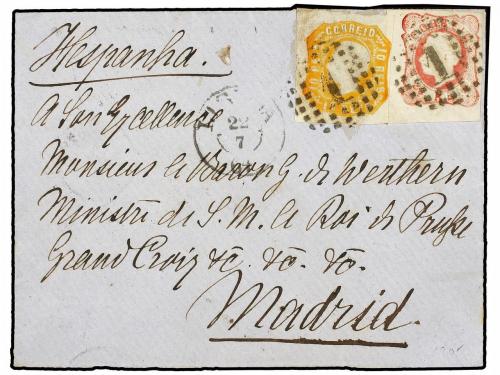 Hespanha.
CORREIO 10 REIS
1
1
22
7
A Son Excellence
Monsieur le Baron G. de Werthern
Ministre de S. M. le Roi de Prusse
Grand Croix &c. &c. &c.
Madrid.